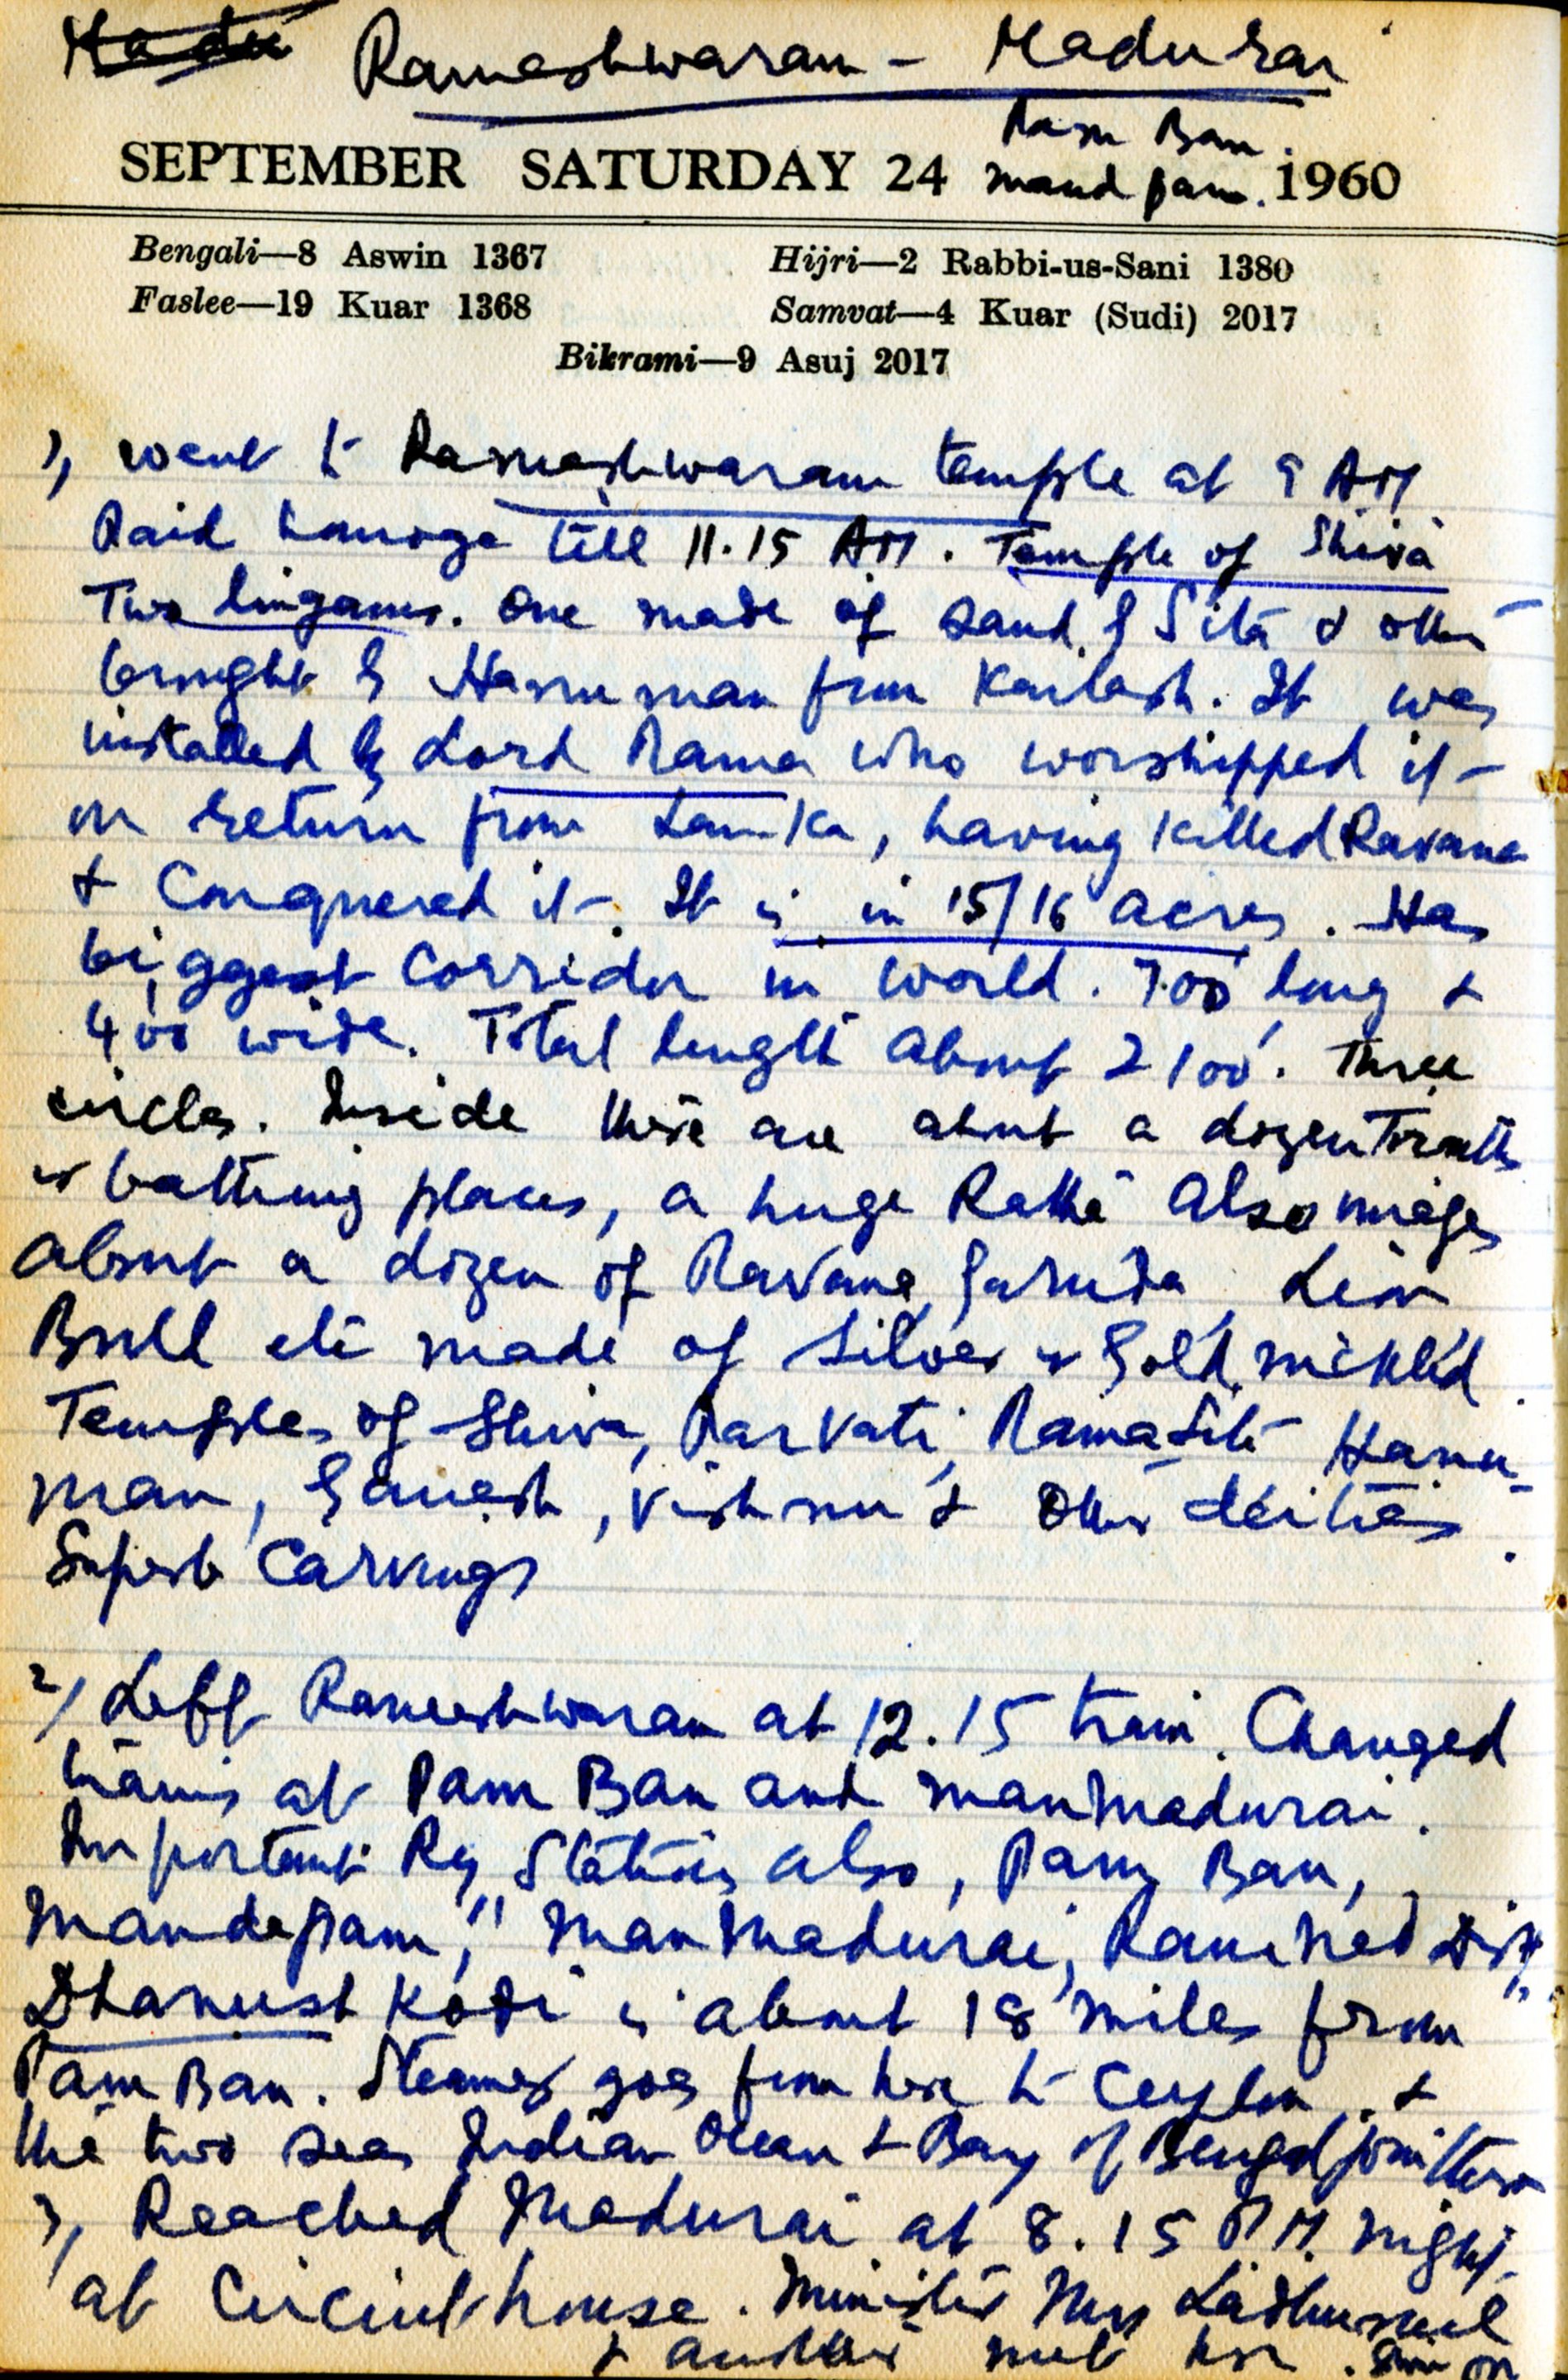 Rameshwaram - Madurai
Pam Ban
SEPTEMBER SATURDAY 24 mandpam. 1960
Bengali—8 Aswin 1367 Hijri—2 Rabbi-us-Sani 1380
Faslee—19 Kuar 1368 Samvat—4 Kuar (Sudi) 2017
Bikrami—9 Asuj 2017
1, went to Rameshwaram temple at 9 AM
Paid homage till 11.15 AM. Temple of Shiva
Two lingams. One made of sand by Sita & other
brought by Hanuman from Kailash. It was
installed by Lord Rama who worshipped it
on return from Lanka, having killed Ravana
& Conquered it. It is in 15/16 acres. Has
biggest Corridor in world. 700' long &
400' wide. Total length about 2100'. Three
circles. Inside there are about a dozen
& bathing places, a huge Rath Also images
about a dozen of Ravana, Garuda Lion
Bull etc made of Silver & Gold,
Temples of Shiva, Parvati, Rama Sita Hanu-
man, Ganesh, Vishnu & other deities.
Superb Carvings
2/ Left Rameshwaram at 12.15 train. Changed
trains at Pam Ban and Manmadurai.
Important Ry Stations also, Pam Ban,
Mandapam, " Manmadurai, Ramnad Distt "
Dhanush Kodi is about 18 miles from
Pam Ban. Steamer goes from here to Ceylon, &
the two seas Indian Ocean & Bay of Bengal join there
3, Reached Madurai at 8.15 P.M. night
at Circuit house. Minister Mrs
& another met her.